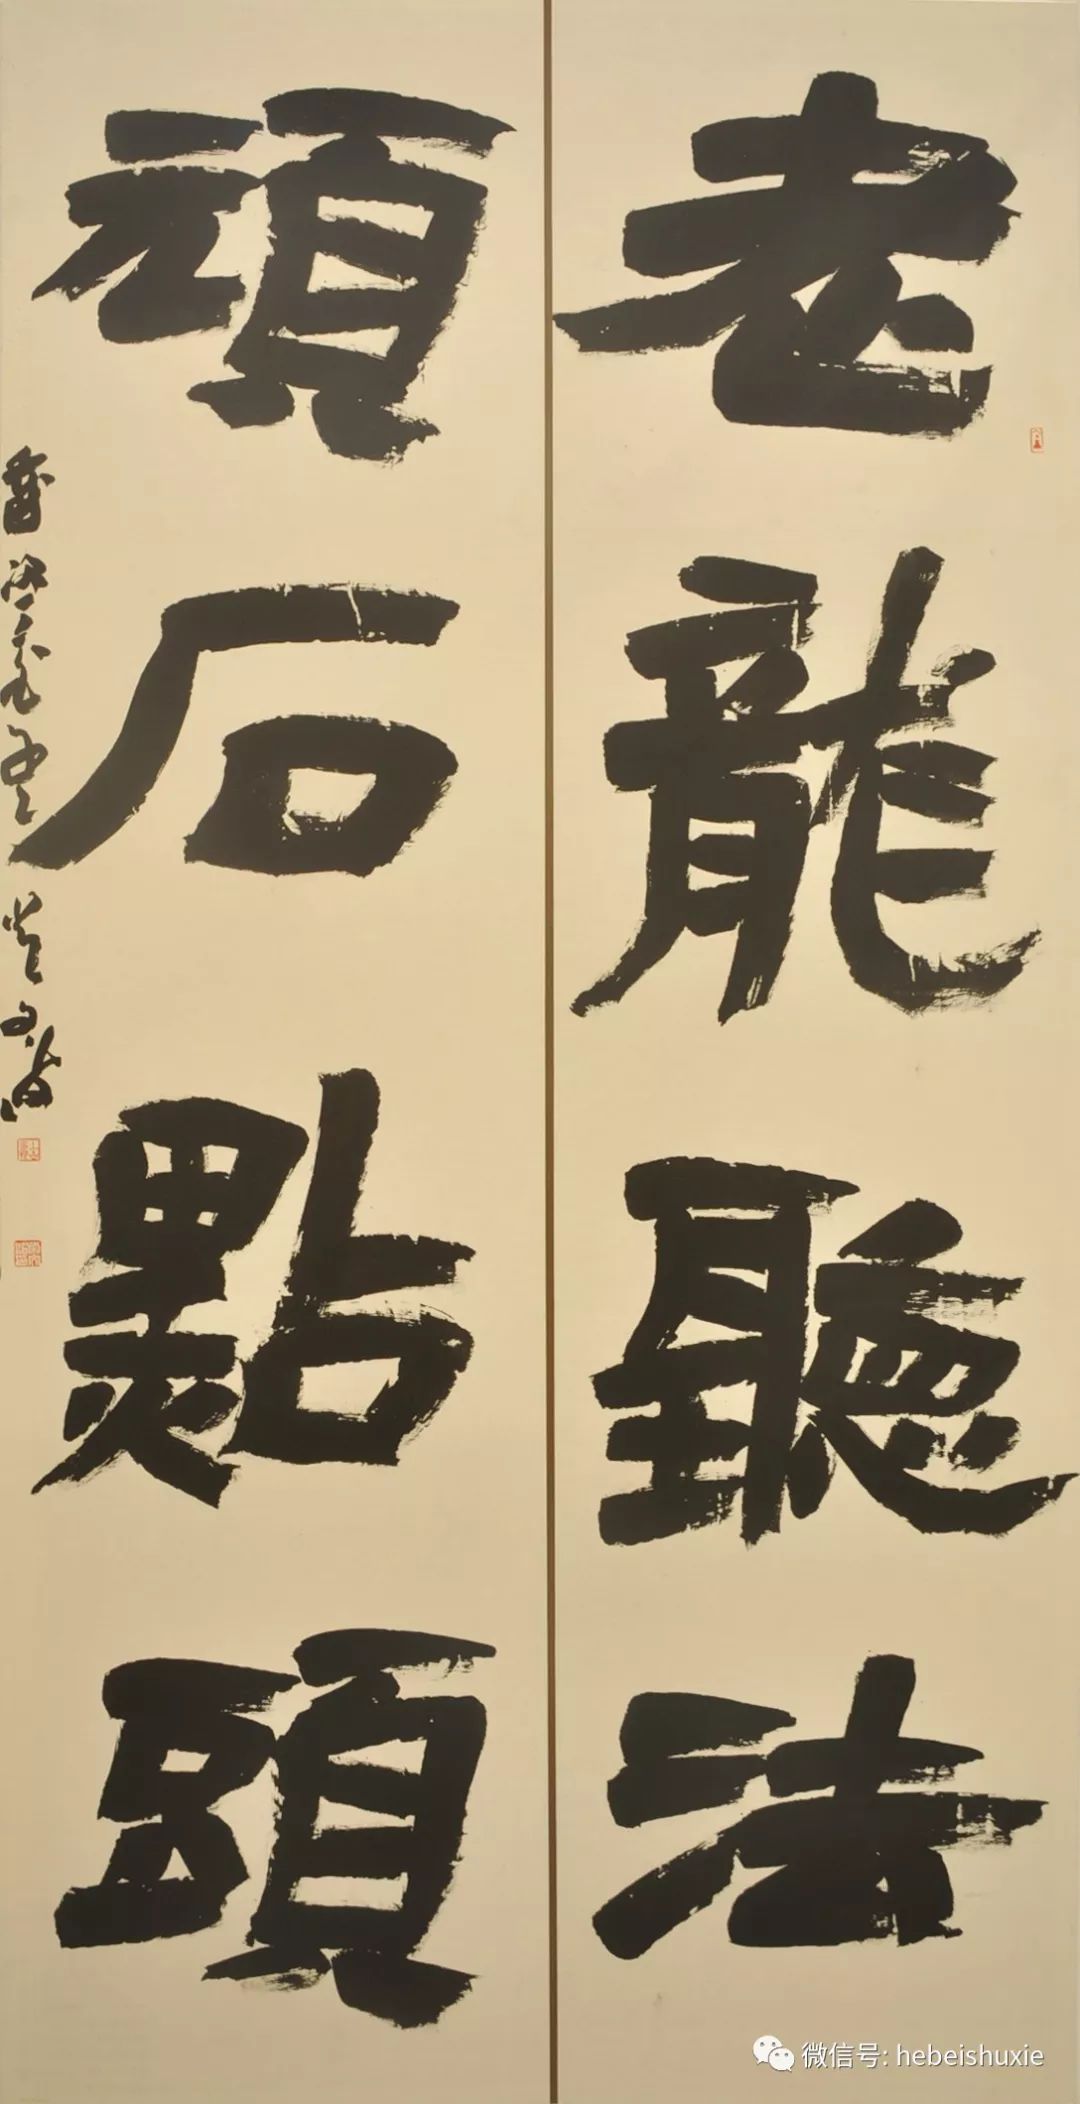 老龍聽法
頑石點頭
微信号: hebeishuxie